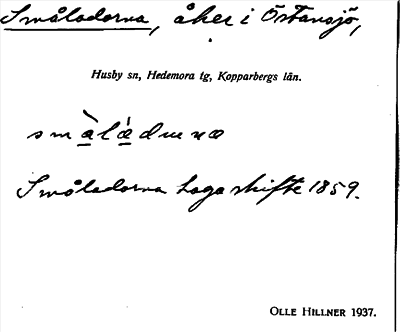 Småladorna, åker i Östansjö,
Husby sn, Hedemora tg, Kopparbergs län.
Småladorna laga skifte 1859.
OLLE HILLNER 1937.